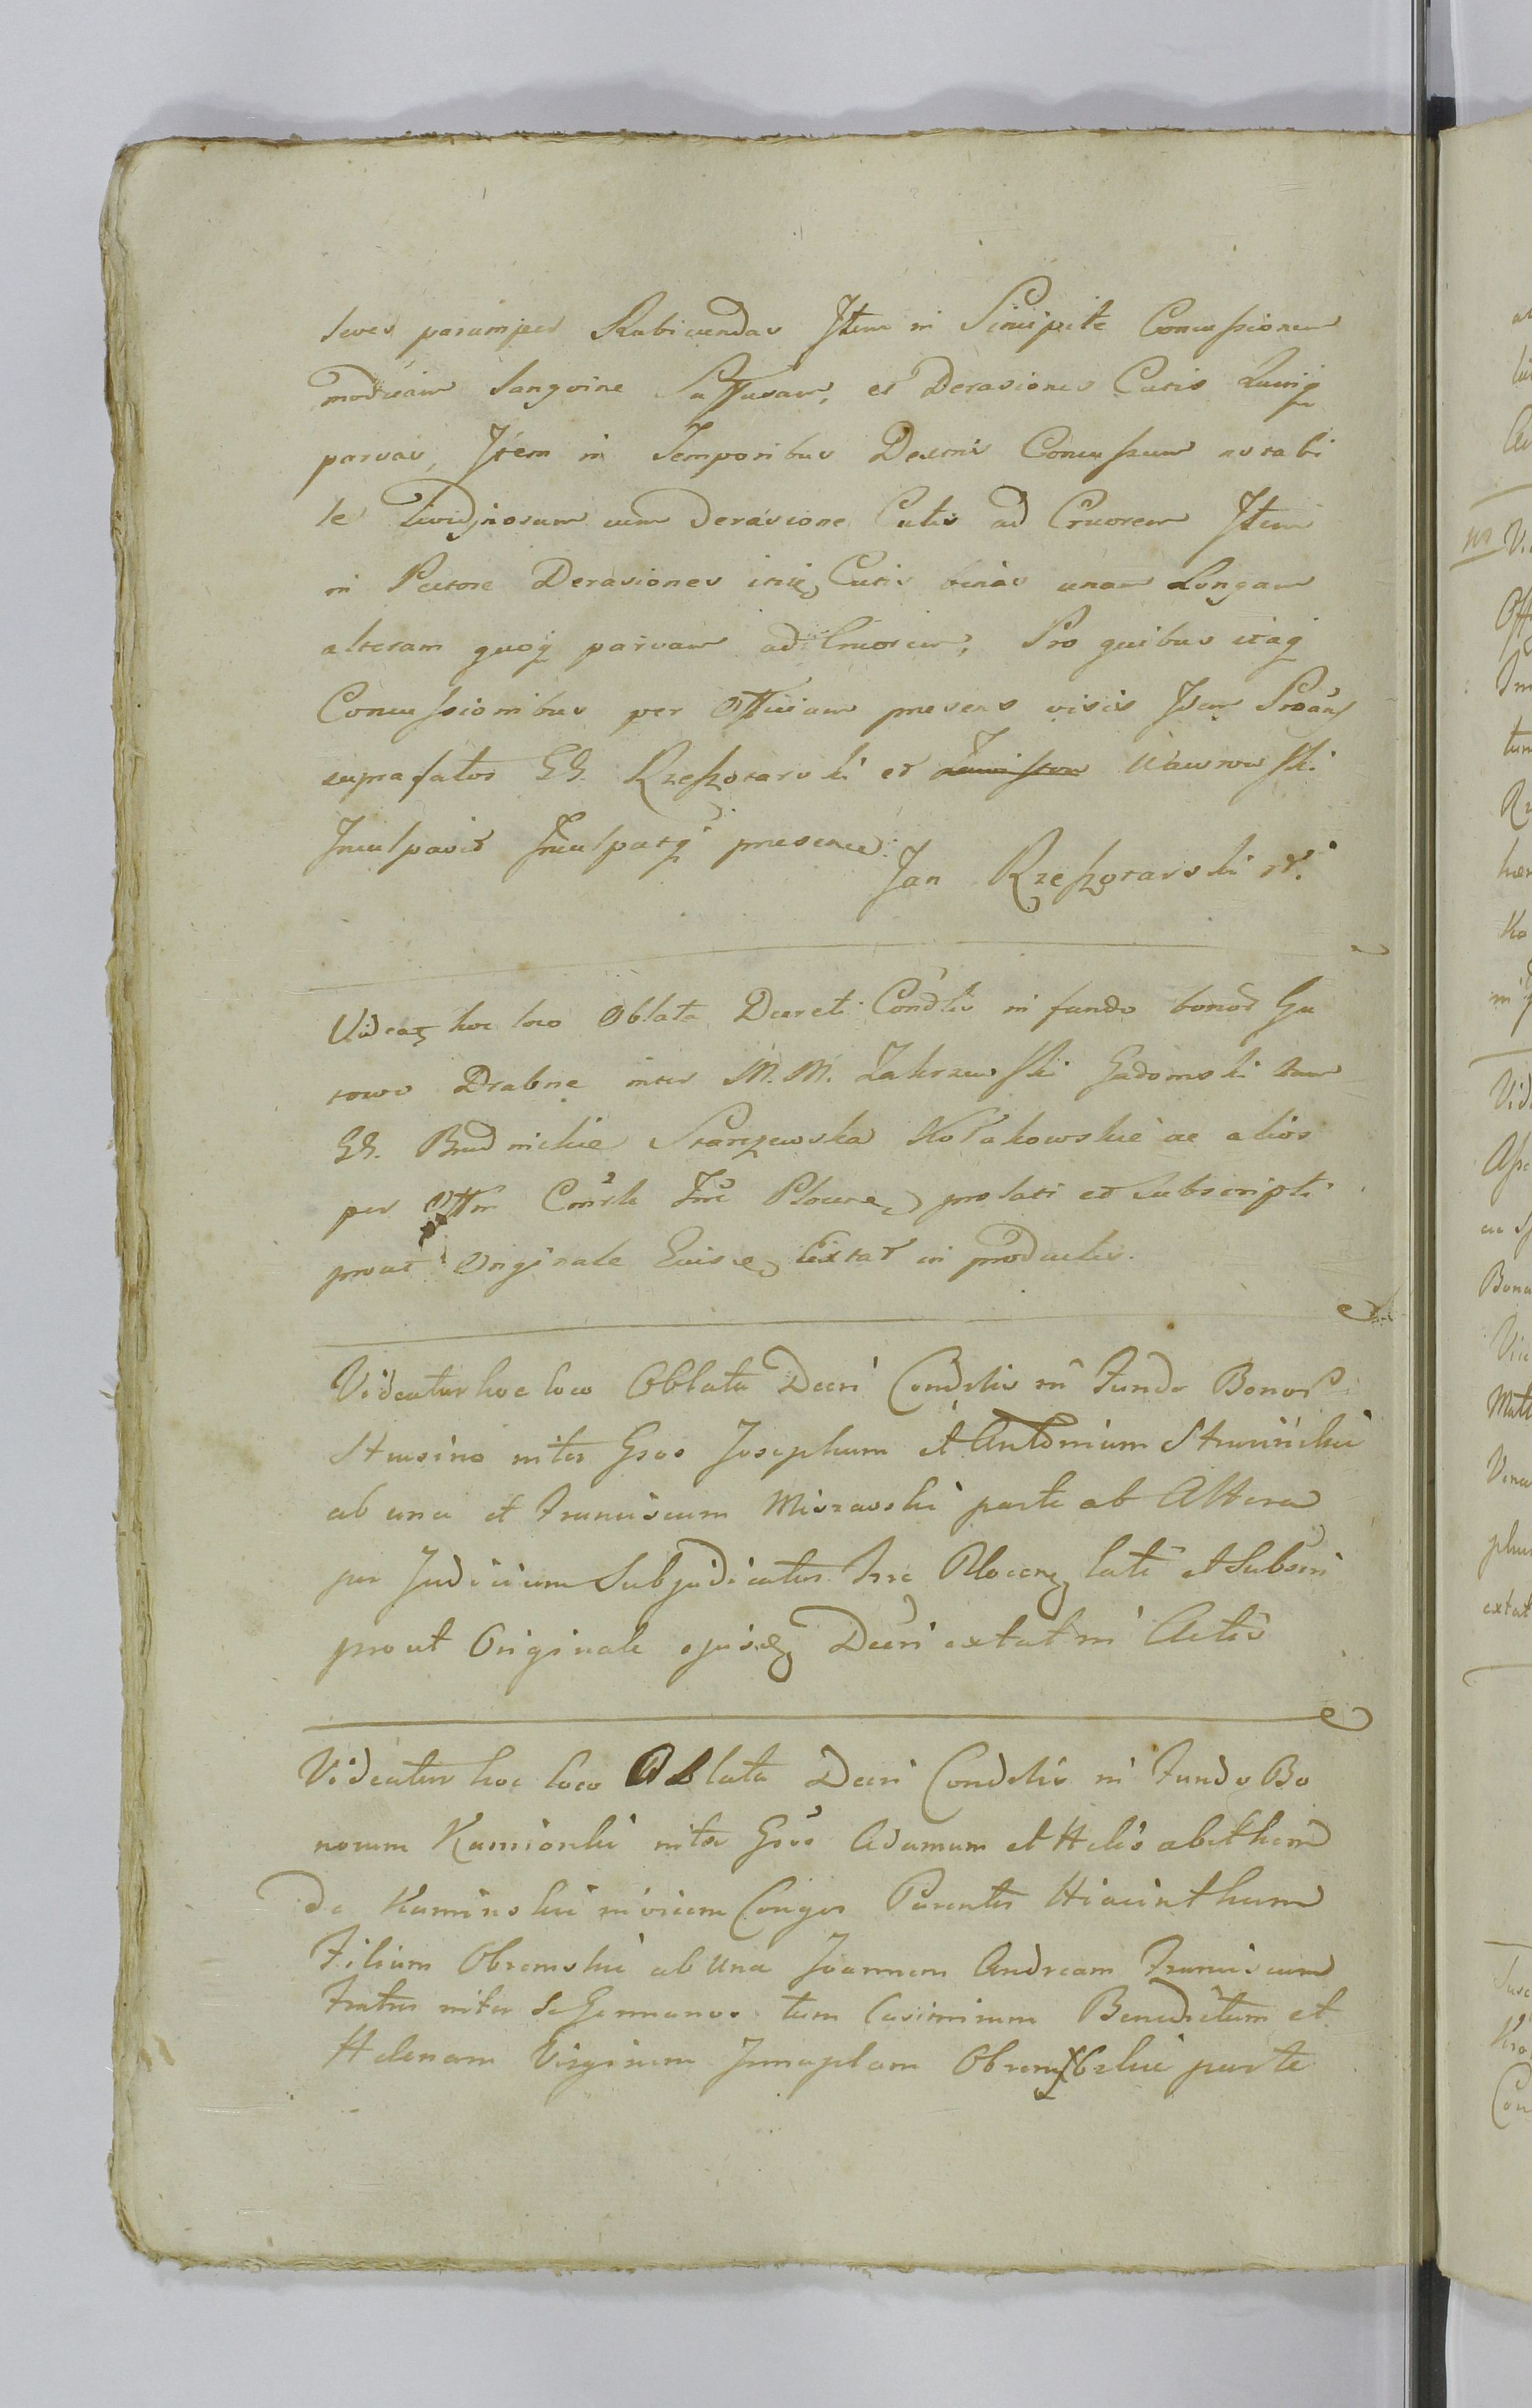 leves parumper Rubicundas Item in Sincipite Concussionem
modicam Sangvine Suffusam, et Derasiones Cutis
parvas, Item in Temporibus Dextris Concussum notabi
le cum Derasione Cutis ad Cruorem Item
in Pectore Derasiones Cutis binas unam Longam
alteram quoq parvam ad Cruorem; Pro quibus itaq
Concussionibus per Officium presens visis Idem
suprafatos GG. Rzeszotarski et Wawrowski
Inculpavit presence.
Jan Rzeszotarski
Videat hoc loco Oblata Decreti Condlis in fundo bonor Gu
towo Drabne inter M. M. Zakrzewski Gadomski tum
GG. Budnickie Starczewska Kołakowskie ac alios
per Offm Plocen prolati et Subscripti
prout Originale Extat in productis.
Videatur hoc loco Oblata Decri Condelis in Fundo Bonor
Strusino inter Gsos Josephum et Antonium Strusinskie
ab una et Franciscum Miszewski parte ab Altera
per Judicium Subjudicatus Trre Plocens lati et Subscri
prout Originale ejusd Decri extat in Actis
Videatur hoc loco Oblata Decri Condelis in Fundo Bo
norum Kamionki inter Gsos Adamum et Helisabetham
de Kaminskie invicem Conges Parentes Hiacinthum
Filium Obremskie ab Una Joannem Andream Franciscum
Fratres inter Se Germanos tum Casimirum Benedictum et
Helenam Virginem Innuptam parte